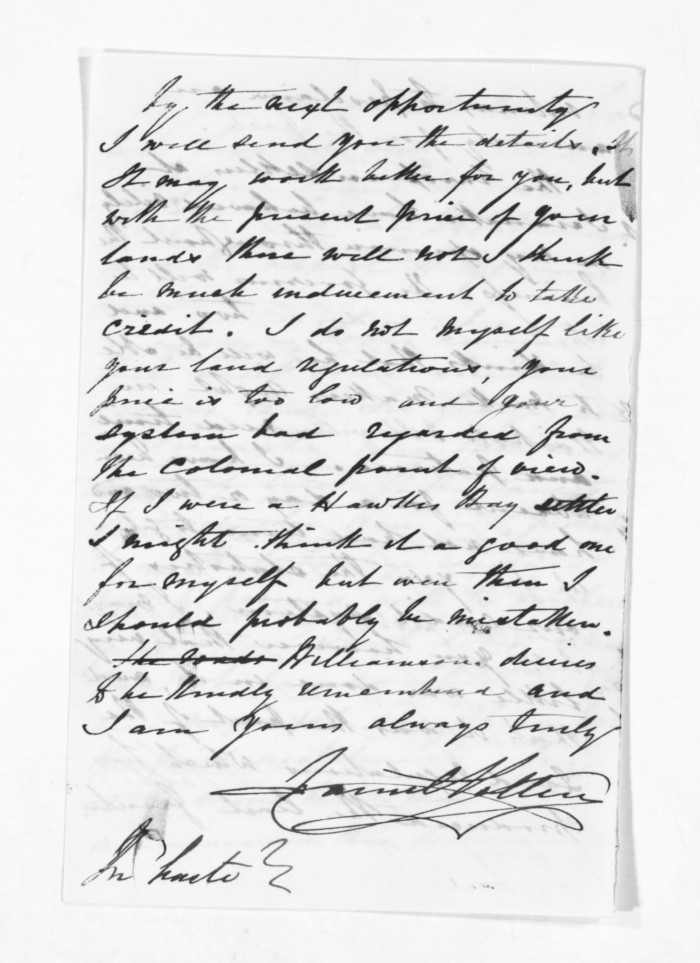 by the next opportunity
I will send you the details. If
It may work better for you, but
with the present price of your
lands there will not I think
be much inducement to take
credit. I do not myself like
your land regulations, your
price is too low and your
system bad regarded from
the Colonial point of view.
If I were a Hawkes Bay settler
I might think it a good one
for myself but even then I
should probably be mistaken.
the roads Williamson desires
to be kindly remembered and
I am yours always truly
In haste